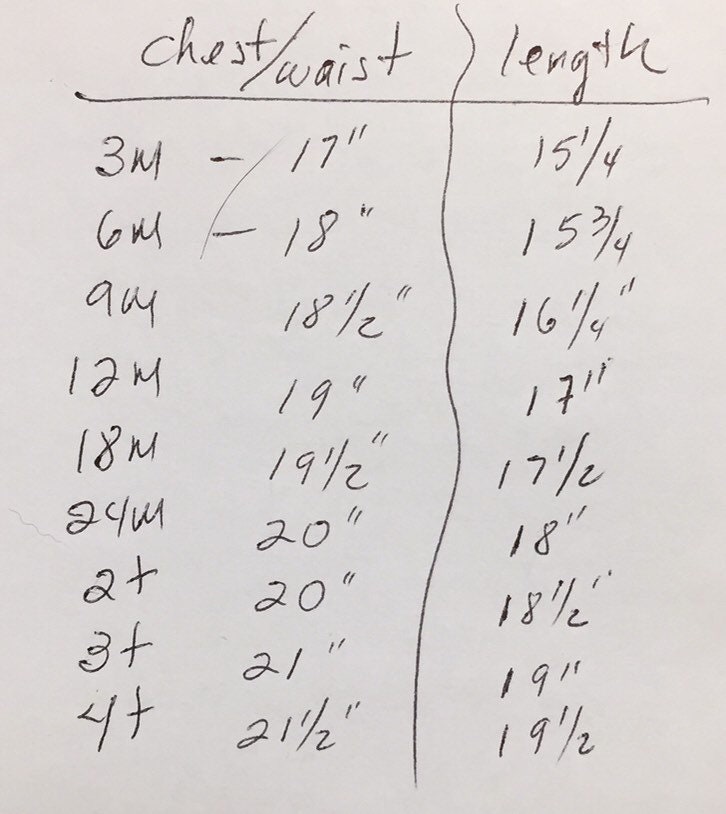 chest/waist length
3M - 17" 15 1/4
6M - 18" 15 3/4
9M 18 1/2" 16 1/4"
12M 19" 17"
18M 19 1/2" 17 1/2
24M 20" 18"
2t 20" 18 1/2"
3t 21" 19"
4t 21 1/2" 19 1/2